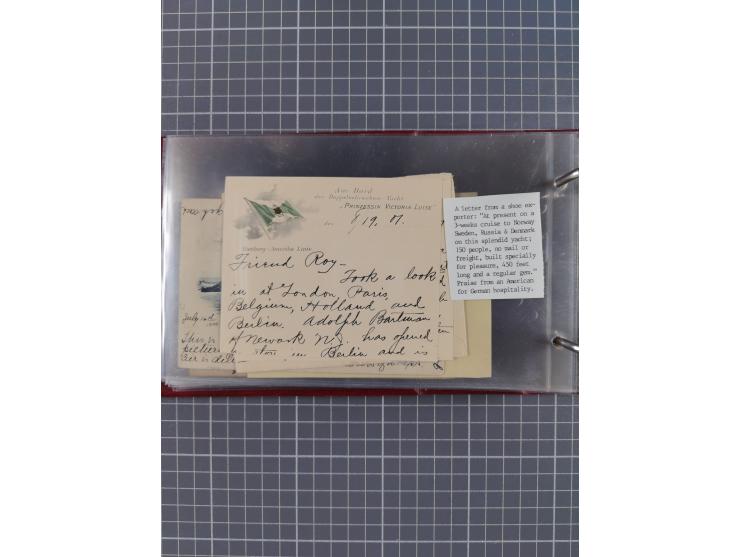 An Bord
der Doppelschrauben-Yacht
„PRINZESSIN VICTORIA LUISE"
den 8/19. 01.
Hamburg-Amerika Linie
Friend Roy-
Took a look
in at London, Paris,
Belgium, Holland and
Berlin. Adolph Bartman
of Newark NJ. has opened
store in Berlin and is
A letter from a shoe ex-
porter: "At present on a
3-weeks cruise to Norway
Sweden, Russia & Denmark
on this splendid yacht;
150 people, no mail or
freight, built specially
for pleasure, 450 feet
long and a regular gem."
Praise from an American
for German hospitality.